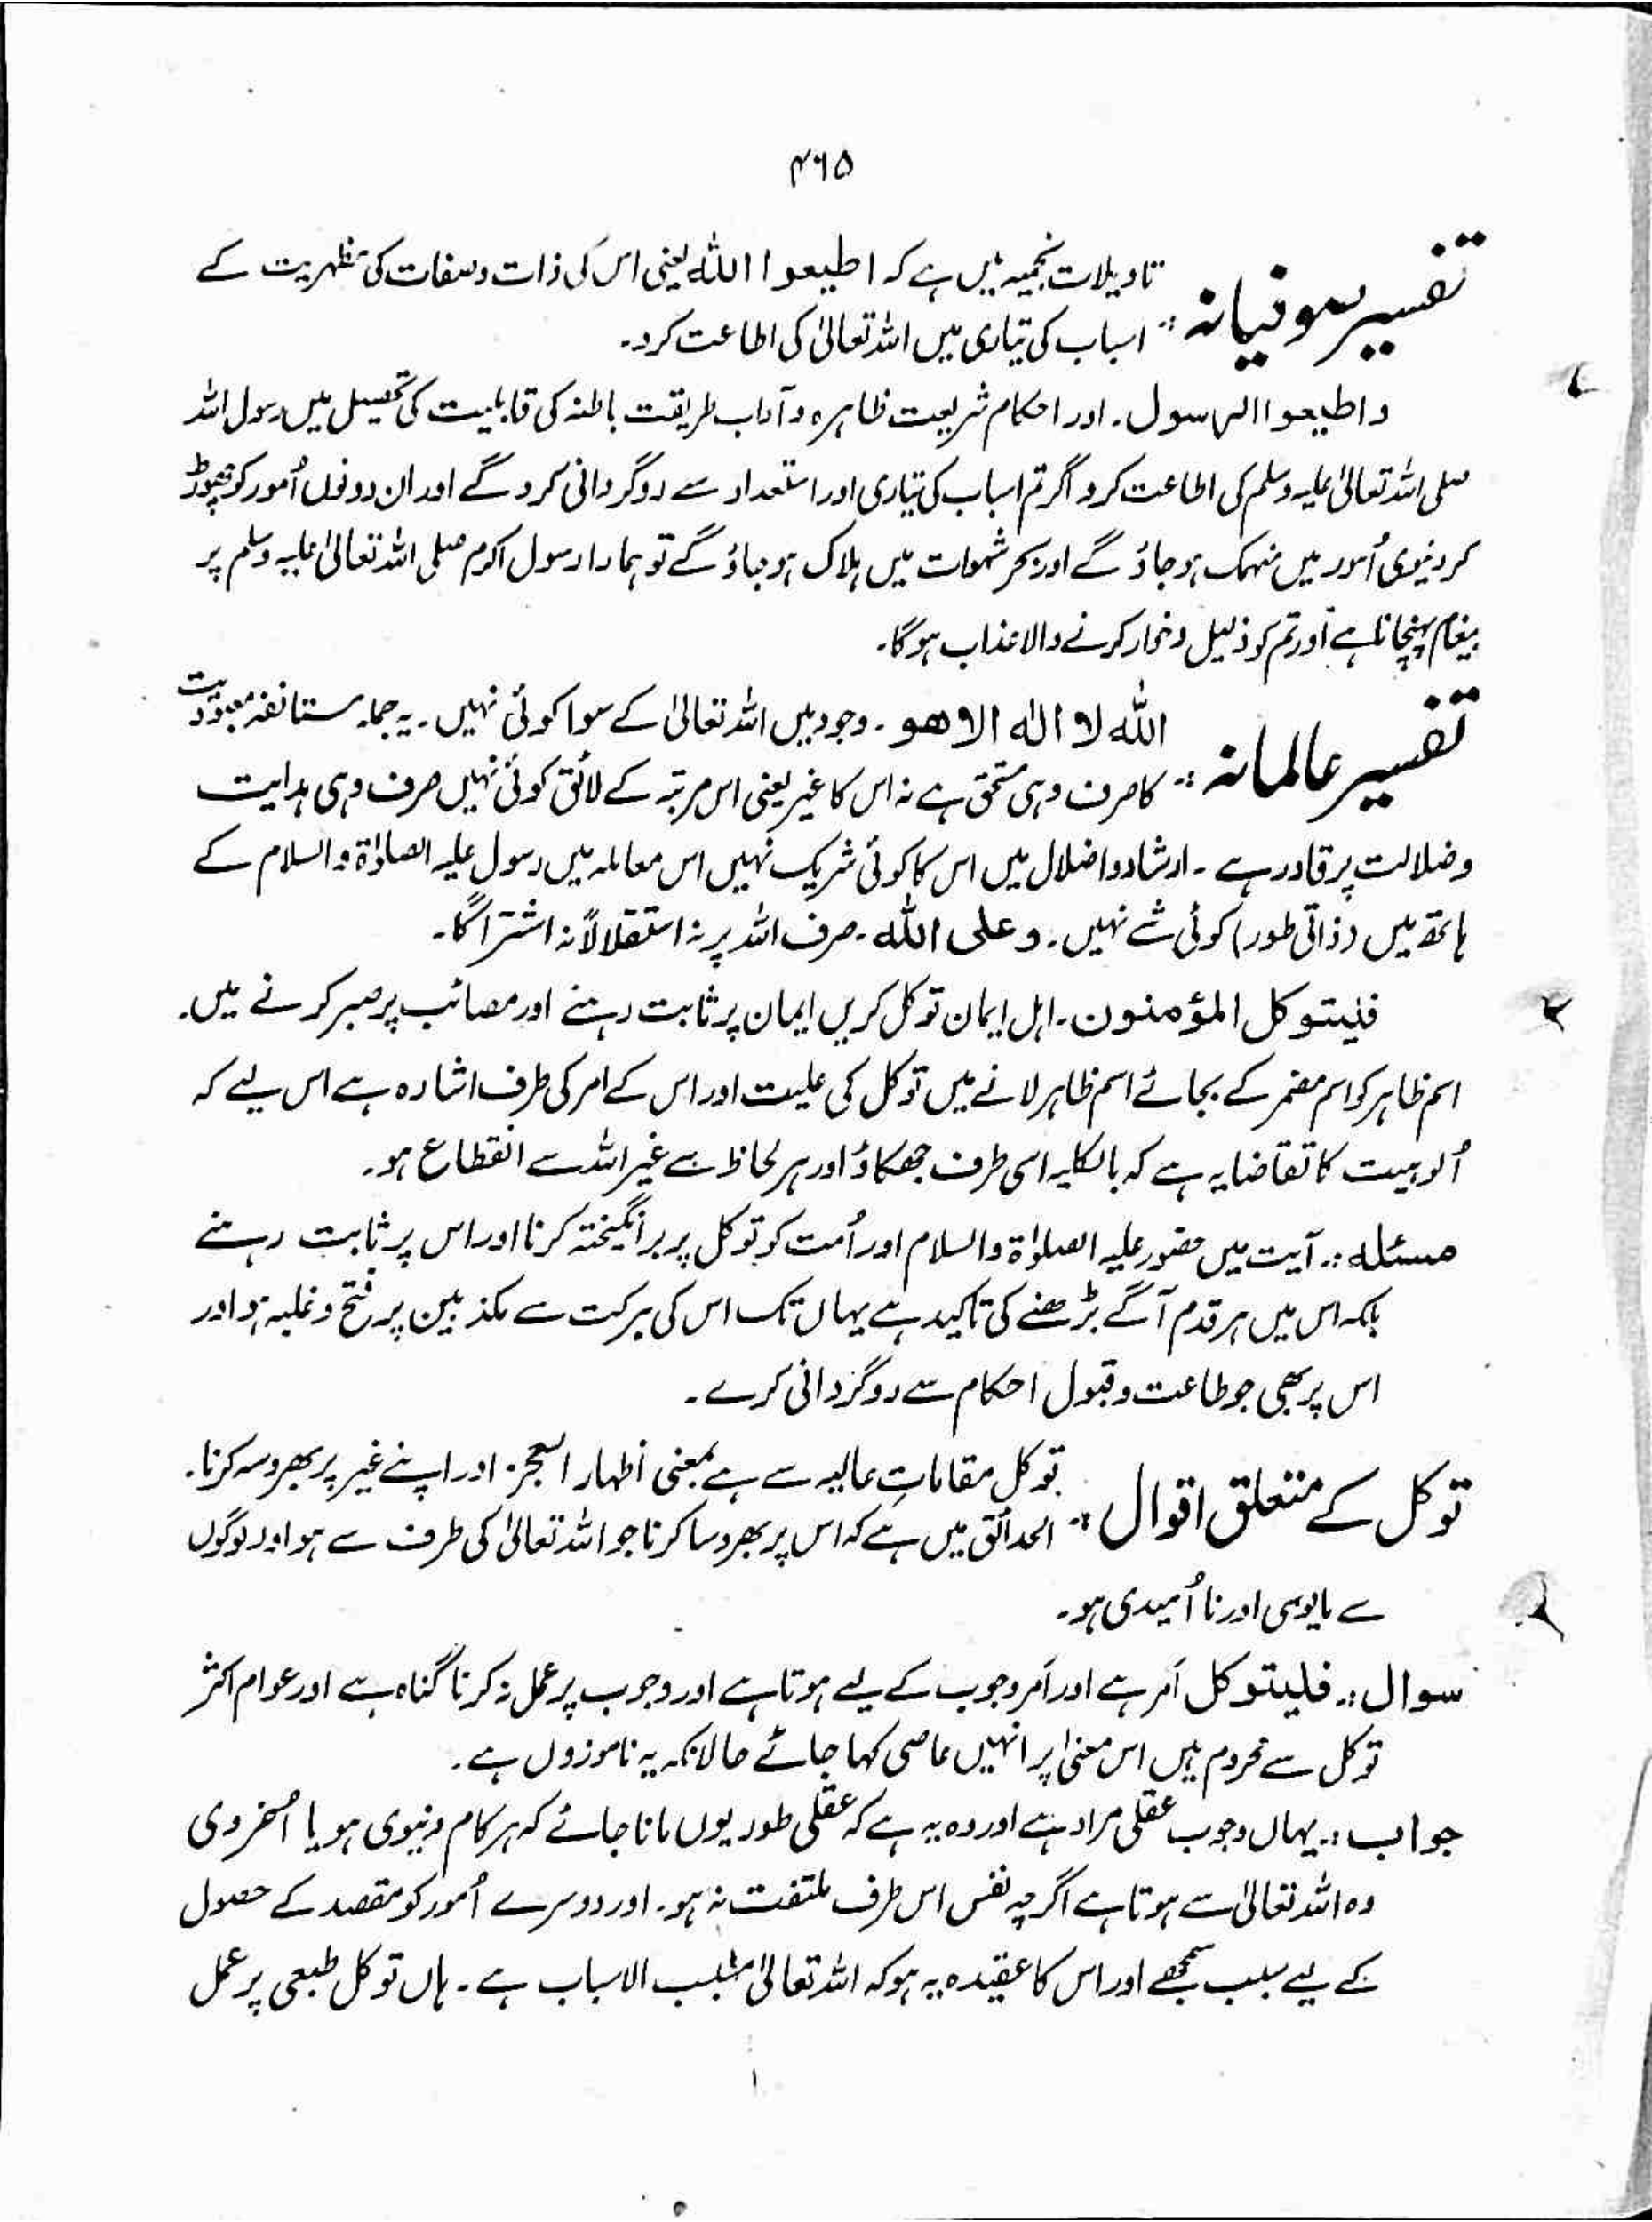 ۴۶۵
تفسیر صوفیانہ :۔ تاویلات نجمیہ میں ہے کہ اطیعوا اللہ یعنی اس کی ذات و صفات کی مظہریت کے
اسباب کی تیاری میں اللہ تعالیٰ کی اطاعت کرو۔
و اطیعوا الرسول۔ اور احکام شریعت ظاہرہ و آداب طریقت باطنہ کی قابلیت کی تحصیل میں رسول اللہ
صلی اللہ تعالیٰ علیہ وسلم کی اطاعت کرو اگر تم اسباب کی تیاری اور استعداد سے روگردانی کرو گے اور ان دونوں اُمور کو چھوڑ
کر دنیوی اُمور میں منہمک ہو جاؤ گے اور بحر شہوات میں ہلاک ہو جاؤ گے تو ہمارا رسول اکرم صلی اللہ تعالیٰ علیہ وسلم پر
پیغام پہنچانا ہے اور تم کو ذلیل و خوار کرنے والا عذاب ہوگا۔
تفسیر عالمانہ :۔ اللہ لا الٰہ الا ھو۔ وجود میں اللہ تعالیٰ کے سوا کوئی نہیں۔ یہ جملہ مستانفہ معبودیت
کا صرف وہی مستحق ہے نہ اس کا غیر یعنی اس مرتبہ کے لائق کوئی نہیں صرف وہی ہدایت
و ضلالت پر قادر ہے۔ ارشاد و اضلال میں اس کا کوئی شریک نہیں اس معاملہ میں رسول علیہ الصلوٰۃ والسلام کے
ہاتھ میں (ذاتی طور) کوئی شے نہیں۔ و علی اللہ۔ صرف اللہ پر نہ استقلالاً نہ اشتراکاً۔
فلیتوکل المؤمنون۔ اہل ایمان توکل کریں ایمان پر ثابت رہنے اور مصائب پر صبر کرنے میں۔
اسم ظاہر کو اسم مضمر کے بجائے اسم ظاہر لانے میں توکل کی علیت اور اس کے امر کی طرف اشارہ ہے اس لیے کہ
اُلوہیت کا تقاضا یہ ہے کہ بالکلیہ اسی طرف جھکاؤ اور ہر لحاظ سے غیر اللہ سے انقطاع ہو۔
مسئلہ :۔ آیت میں حضور علیہ الصلوٰۃ والسلام اور اُمت کو توکل پر برانگیختہ کرنا اور اس پر ثابت رہنے
بلکہ اس میں ہر قدم آگے بڑھنے کی تاکید ہے یہاں تک اس کی برکت سے مکذبین پر فتح و غلبہ ہو اور
اس پر بھی جو طاعت و قبول احکام سے روگردانی کرے۔
توکل کے متعلق اقوال :۔ توکل مقاماتِ عالیہ سے ہے بمعنی اظہار العجز اور اپنے غیر پر بھروسہ کرنا۔
الحدائق میں ہے کہ اس پر بھروسا کرنا جو اللہ تعالیٰ کی طرف سے ہو اور لوگوں
سے مایوسی اور نا اُمیدی ہو۔
سوال :۔ فلیتوکل اَمر ہے اور اَمر وجوب کے لیے ہوتا ہے اور وجوب پر عمل نہ کرنا گناہ ہے اور عوام اکثر
توکل سے محروم ہیں اس معنیٰ پر انہیں عاصی کہا جائے حالانکہ یہ ناموزوں ہے۔
جواب :۔ یہاں وجوب عقلی مراد ہے اور وہ یہ ہے کہ عقلی طور یوں مانا جائے کہ ہر کام دنیوی ہو یا اُخروی
وہ اللہ تعالیٰ سے ہوتا ہے اگرچہ نفس اس طرف ملتفت نہ ہو۔ اور دوسرے اُمور کو مقصد کے حصول
کے لیے سبب سمجھے اور اس کا عقیدہ یہ ہو کہ اللہ تعالیٰ مسبب الاسباب ہے۔ ہاں توکل طبعی پر عمل